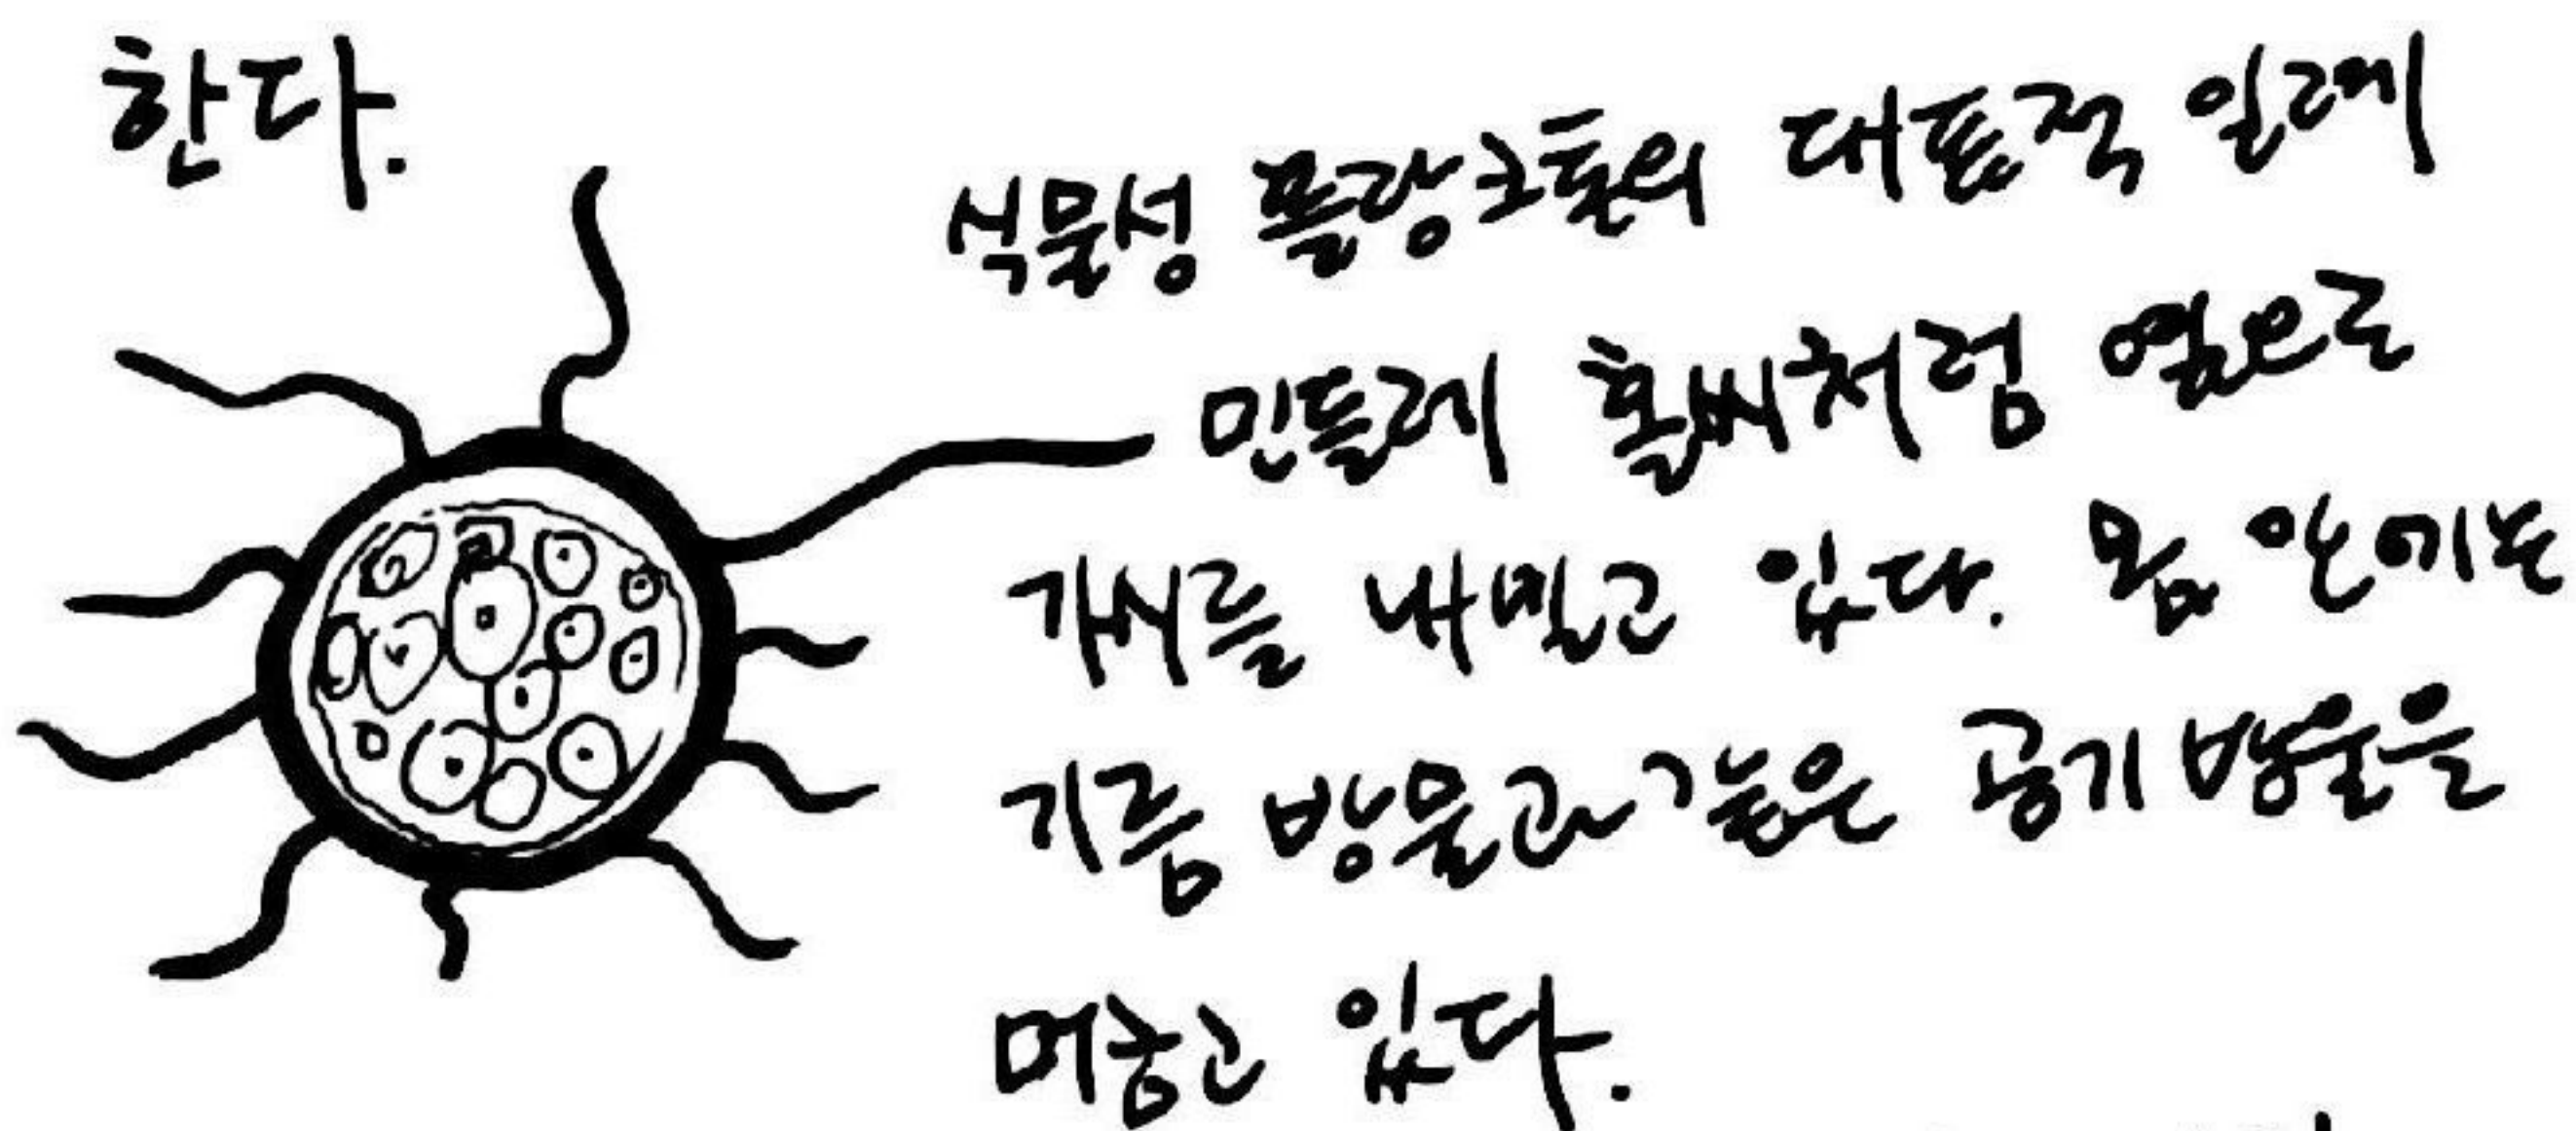 한다.
식물성 플랑크톤의 대표적 일례
민들레 홀씨처럼 옆으로
가시를 내밀고 있다. 몸 안에는
기름 방물과 같은 공기 방울을
머금고 있다.